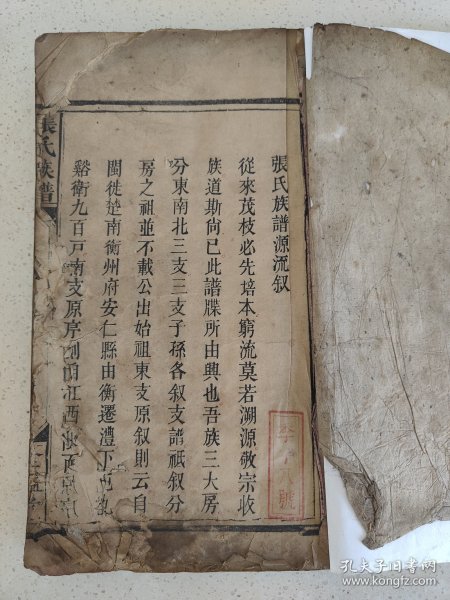 張氏族譜源流叙
從來茂枝必先培本窮流莫若溯源敬宗收
族道斯尚已此譜牒所由興也吾族三大房
分東南北三支三支子孫各叙支譜祗叙分
房之祖並不載公出始祖東支原叙則云自
閩徙楚南衡州府安仁縣由衡遷澧下屯
谿衛九百戸南支原序則由江西
張氏族譜
李 號
孔夫子旧书网
www.kongfz.com